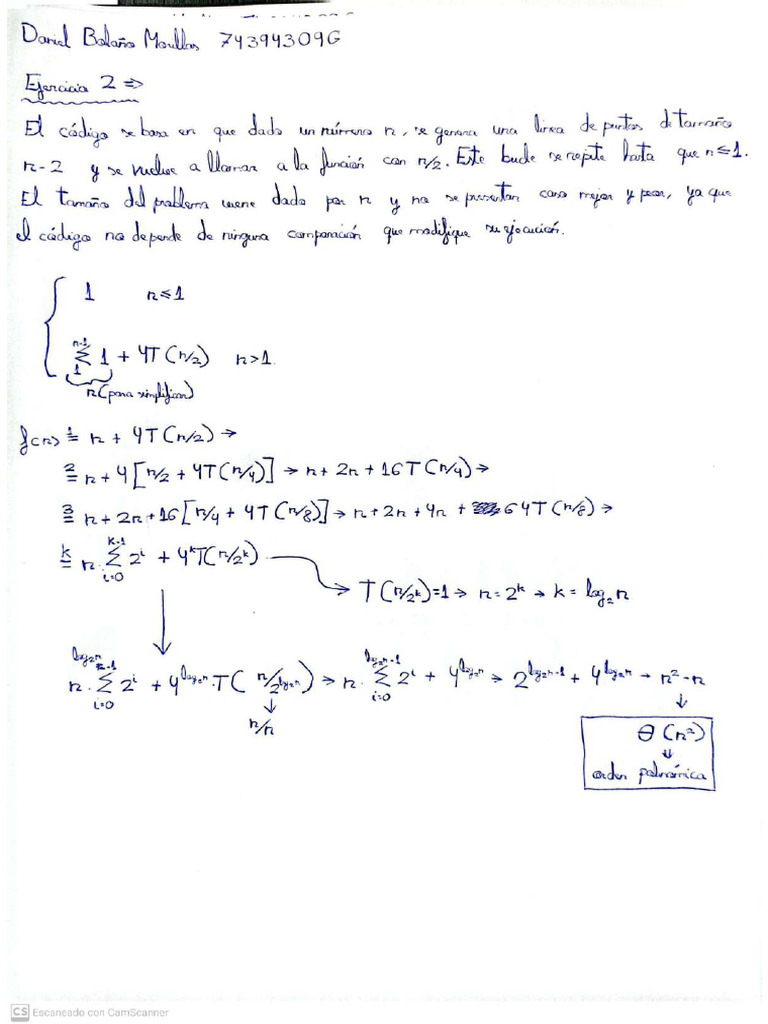 Daniel Bolaño Morellas 74394309G
Ejercicio 2 ⇒
El código se basa en que dado un número n, se genera una línea de puntos de tamaño
n-2 y se vuelve a llamar a la función con n/2. Este bucle se repite hasta que n≤1.
El tamaño del problema viene dado por n y no se presentan caso mejor y peor, ya que
el código no depende de ninguna comparación que modifique su ejecución.
{ 1 n≤1
∑_{1}^{n-1} 1 + 4T(n/2) n>1.
n (para simplificar)
f(n) ≟¹ n + 4T(n/2) →
=² n + 4[n/2 + 4T(n/4)] → n + 2n + 16T(n/4) →
=³ n + 2n + 16[n/4 + 4T(n/8)] → n + 2n + 4n + 64T(n/8) →
=ᵏ n · ∑_{i=0}^{k-1} 2^i + 4^k T(n/2^k) → T(n/2^k)=1 → n=2^k → k=log₂n
n · ∑_{i=0}^{log₂n-1} 2^i + 4^{log₂n} · T(n/2^{log₂n}) → n · ∑_{i=0}^{log₂n-1} 2^i + 4^{log₂n} → 2^{log₂n-1} + 4^{log₂n} → n²-n
↓ n/n
↓
Θ(n²)
↓
orden polinómica
CS Escaneado con CamScanner